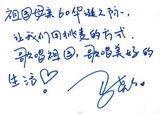 祖国母亲60华诞之际,
让我们同挑麦的方式.
歌唱祖国,歌唱美好的
生活!